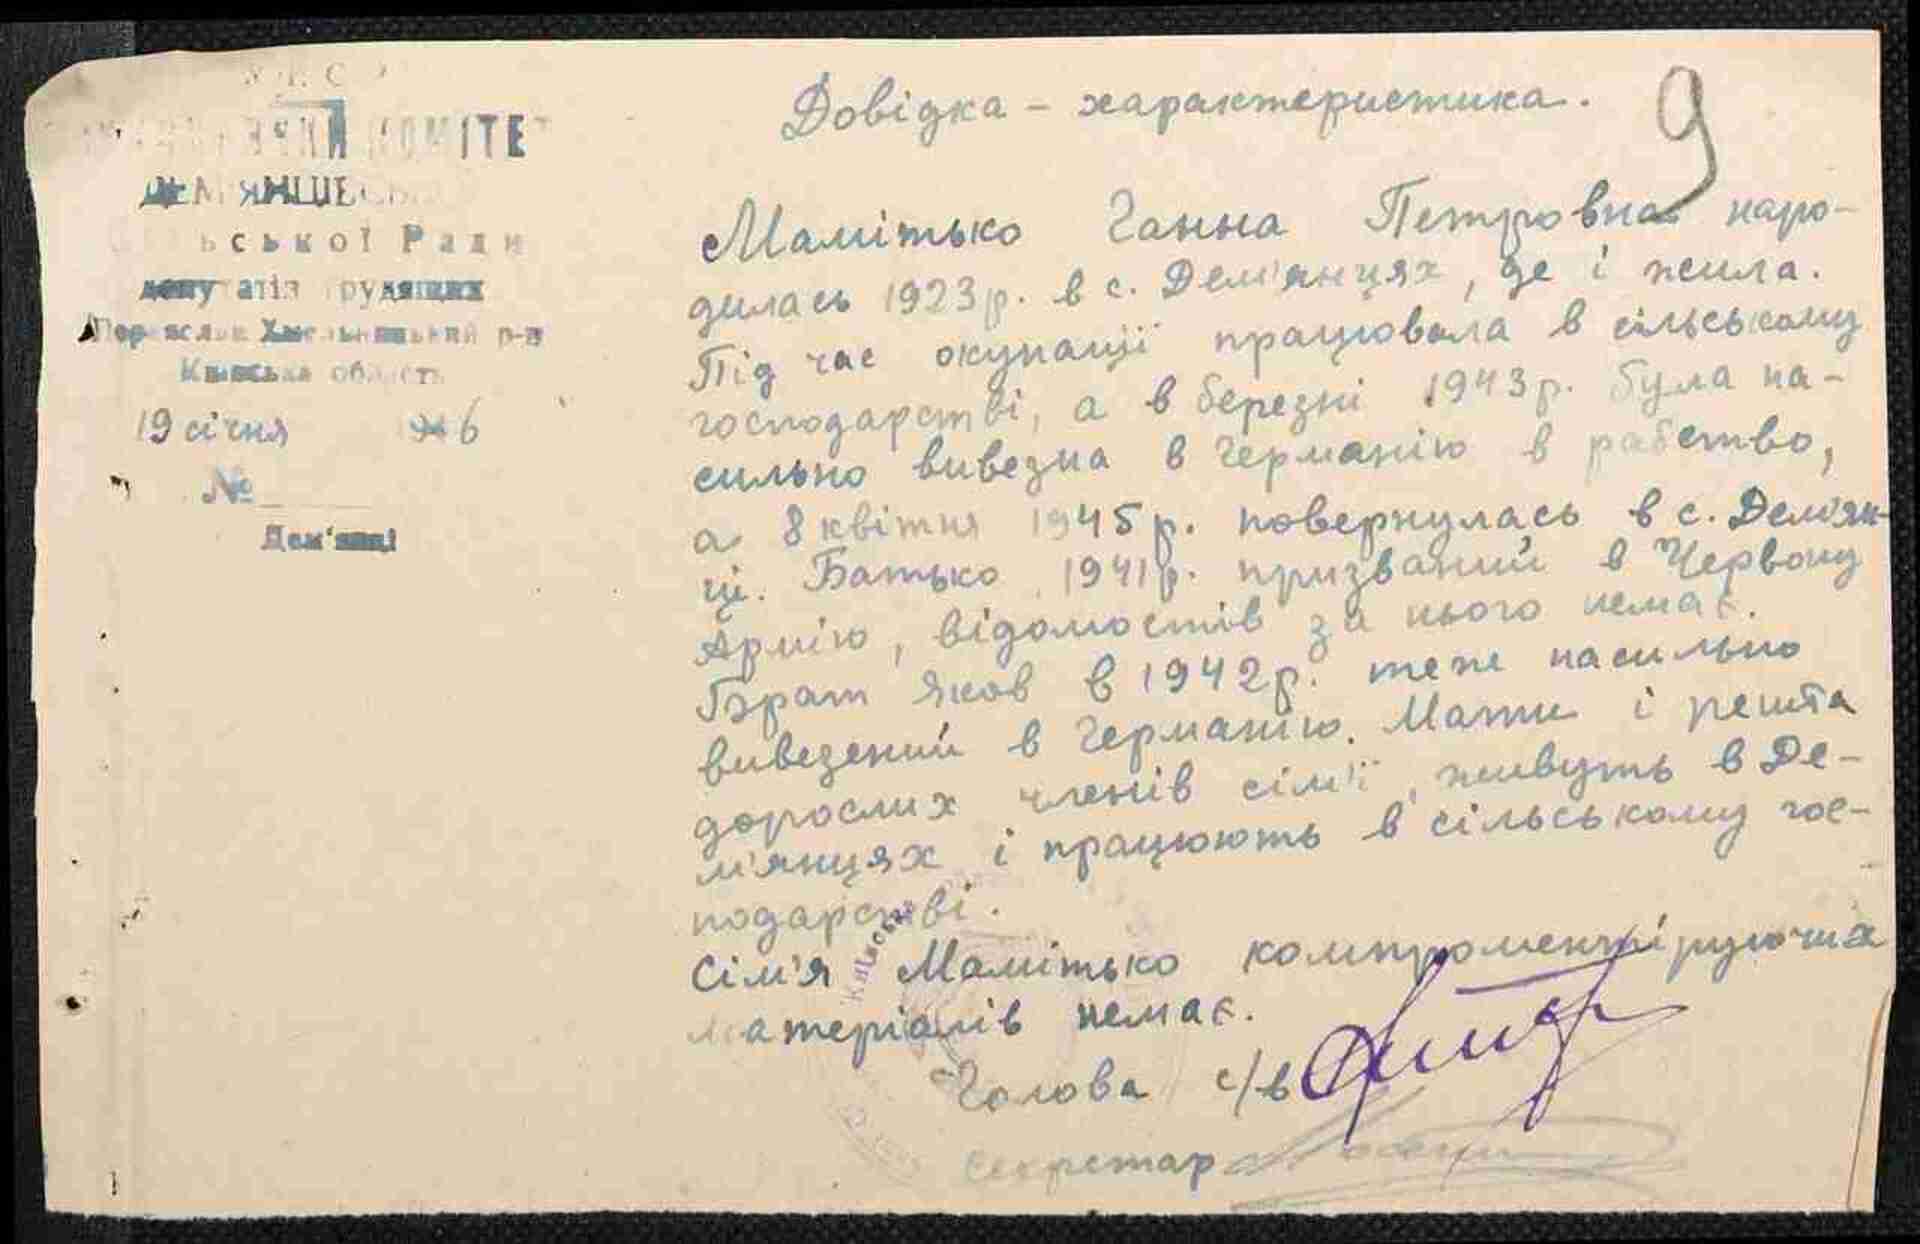 КОМІТЕТ
ДЕМ'ЯНЦІВСЬ
ської Ради
депутатів трудящих
Переяслав Хмельницький р-н
Київська область
19 січня 1946
№
Дем'янці
9
Довідка - характеристика.
Мамітько Ганна Петровна наро-
дилась 1923р. в с. Дем'янцях, де і жила.
Під час окупації працювала в сільському
господарстві, а в березні 1943р. була на-
сильно вивезна в Германію в рабство,
а 8 квітня 1945р. повернулась в с. Дем'ян-
ці. Батько 1941р. призваний в Червону
Армію, відомостів за нього немає.
Брат Яков в 1942р. теже насильно
вивезений в Германію. Мати і решта
дорослих членів сім'ї живуть в Де-
м'янцях і працюють в сільському гос-
подарстві.
Сім'я Мамітько компроментіруючих
матеріалів немає.
Голова с/в
Секретар
Київськ